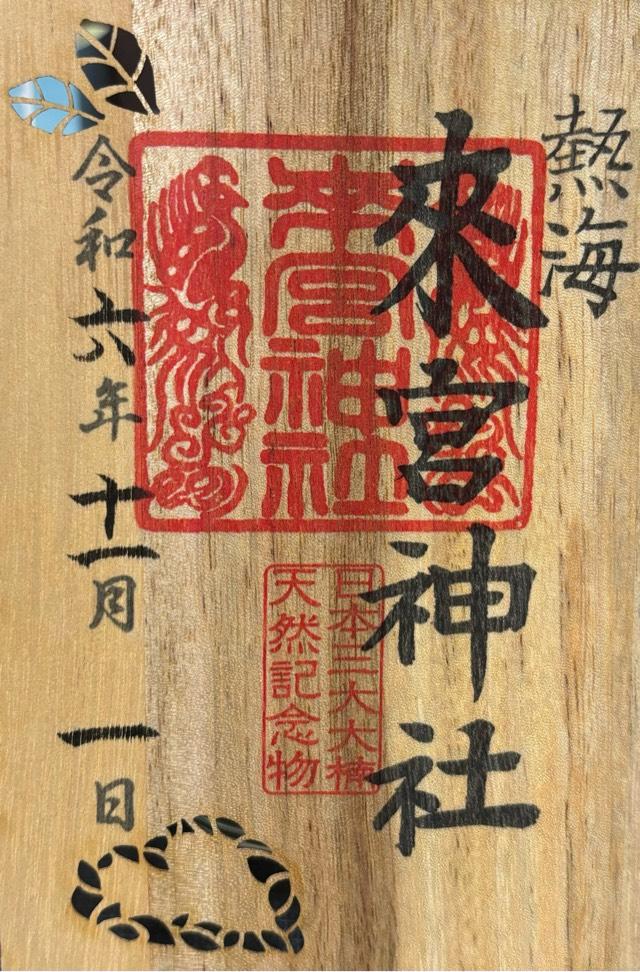 熱海
來宮神社
来宮神社
日本三大大楠
天然記念物
令和六年十一月一日